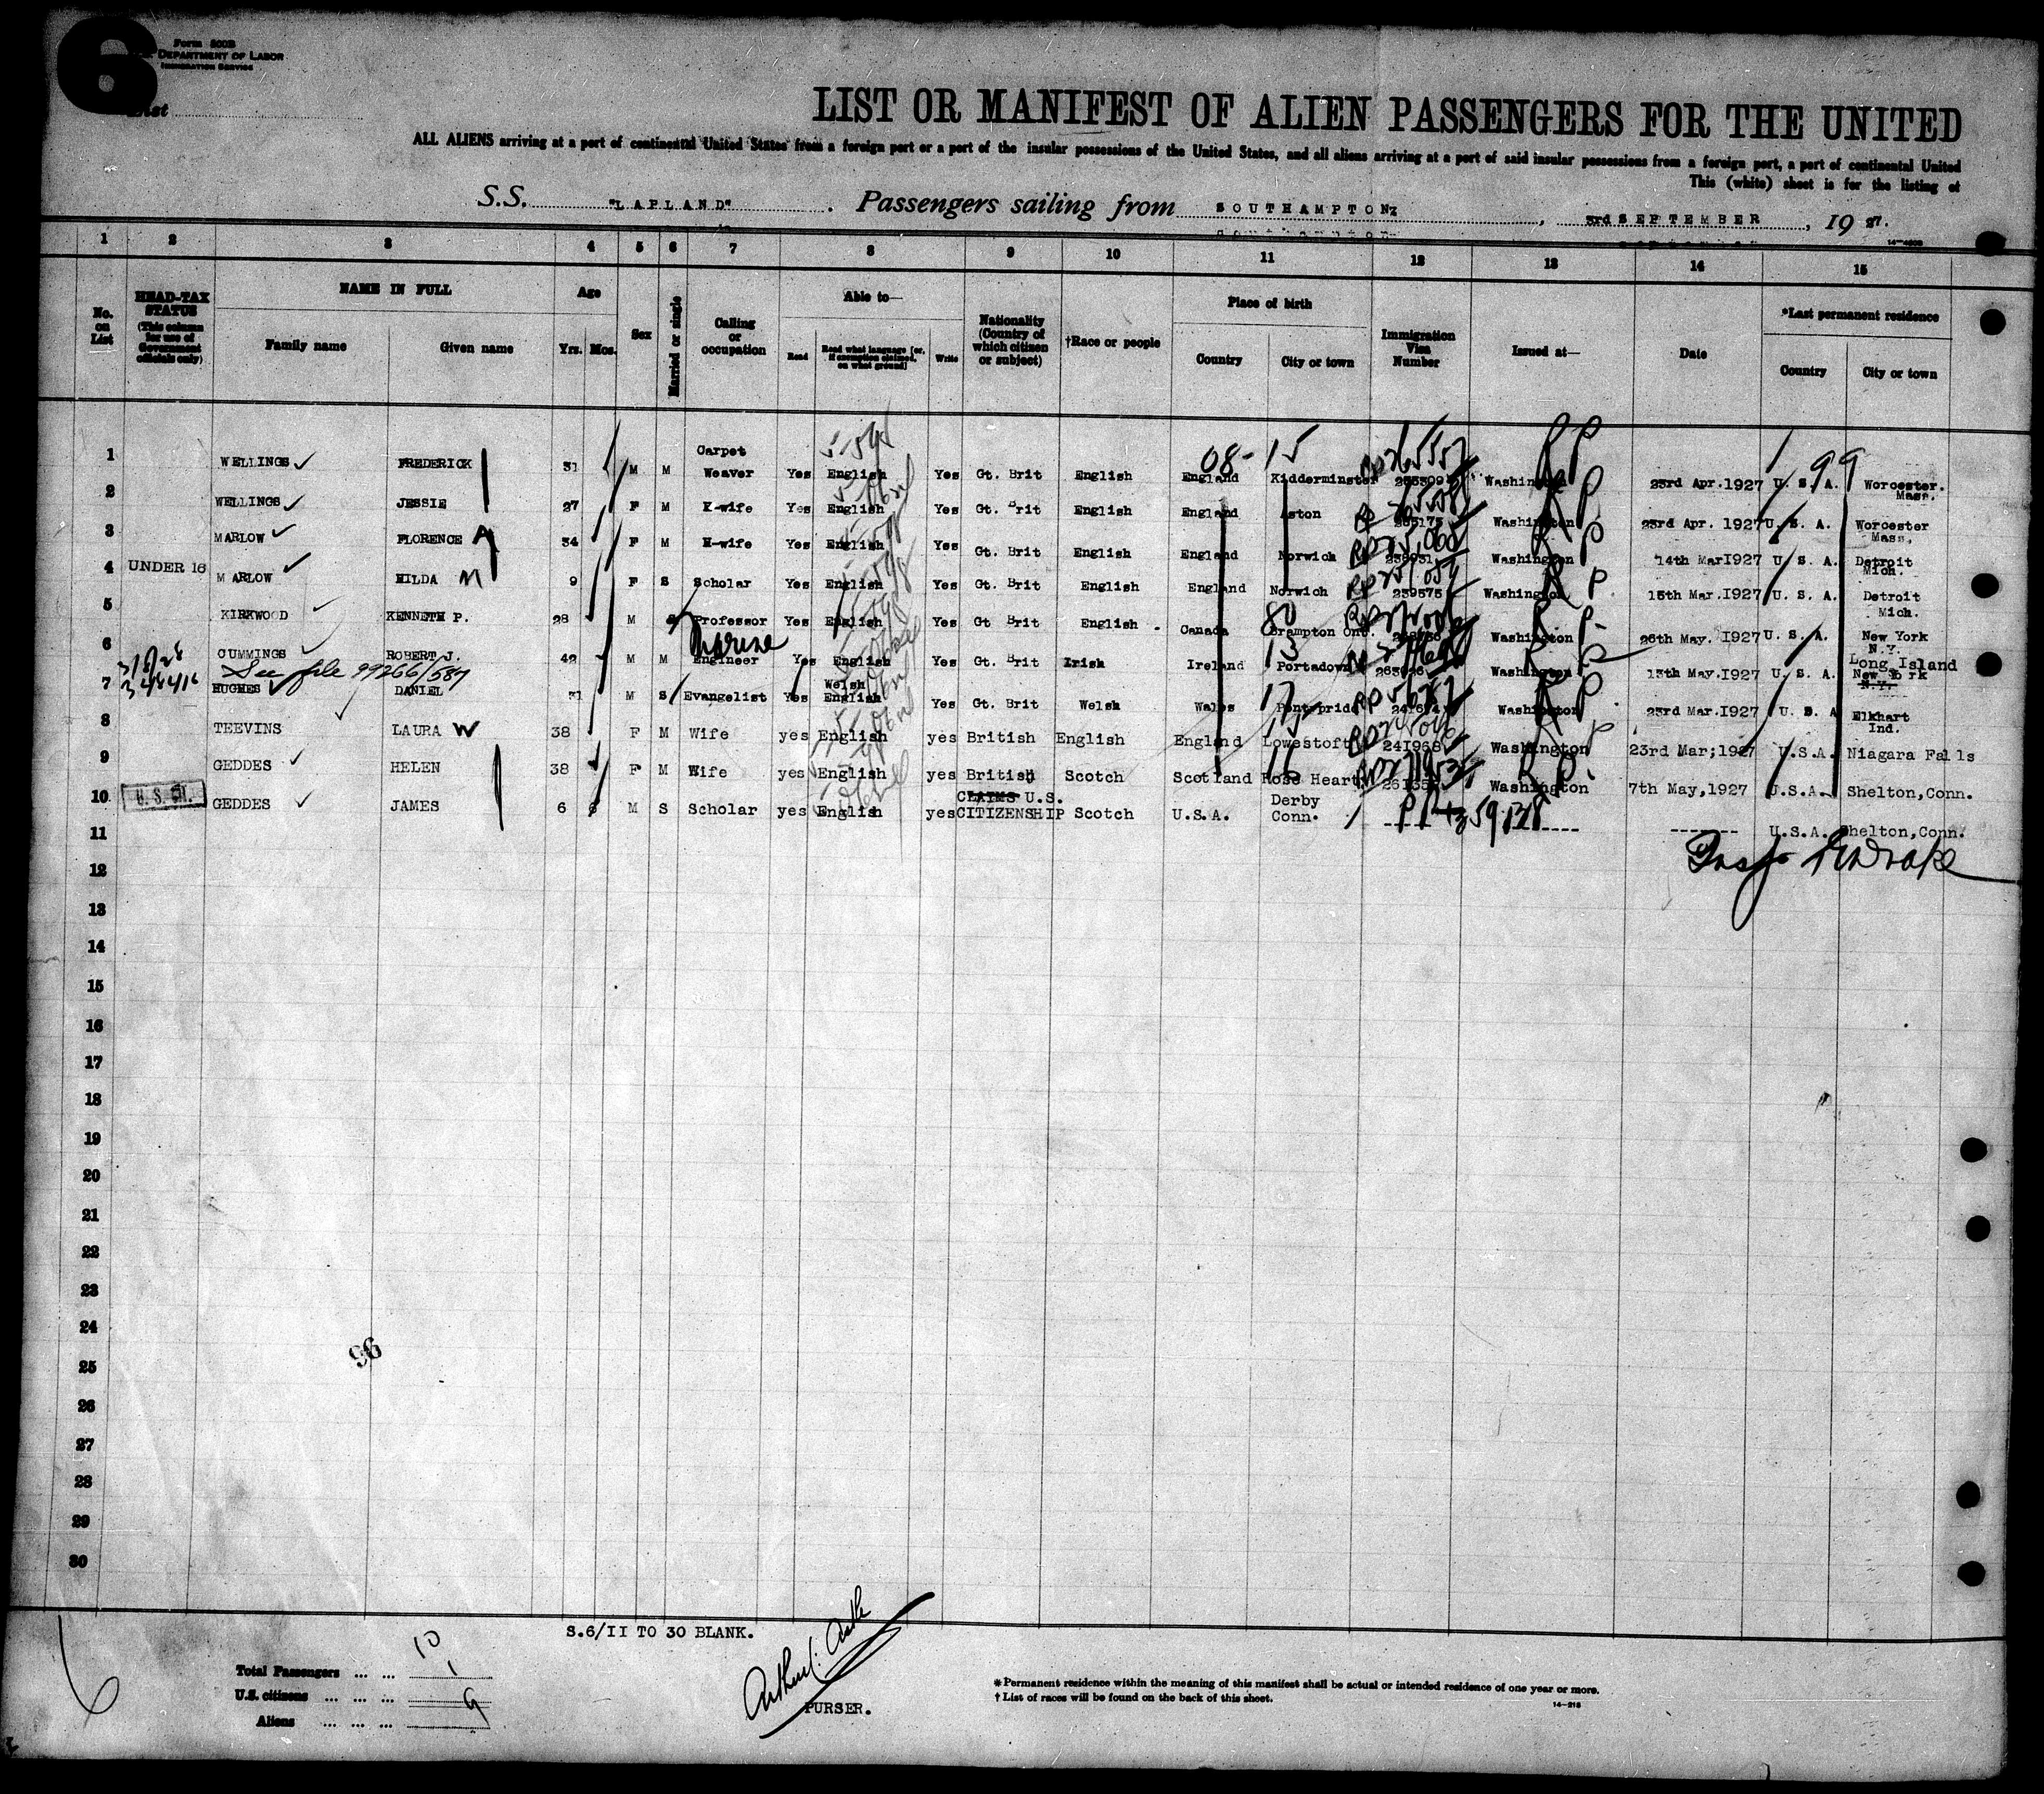 6
Form 500B
DEPARTMENT OF LABOR
IMMIGRATION SERVICE
List
LIST OR MANIFEST OF ALIEN PASSENGERS FOR THE UNITED
ALL ALIENS arriving at a port of continental United States from a foreign port or a port of the insular possessions of the United States, and all aliens arriving at a port of said insular possessions from a foreign port, a port of continental United
This (white) sheet is for the listing of
S.S. "LAPLAND" . Passengers sailing from SOUTHAMPTON , 3rd SEPTEMBER , 19 27.
1 2 3 4 5 6 7 8 9 10 11 12 13 14 15
No. on List
HEAD-TAX STATUS (This column for use of Government officials only)
NAME IN FULL
Family name Given name
Age
Yrs. Mos.
Sex
Married or single
Calling or occupation
Able to—
Read Read what language [or, if exemption claimed, on what ground] Write
Nationality (Country of which citizen or subject)
†Race or people
Place of birth
Country City or town
Immigration Visa Number
Issued at—
Date
*Last permanent residence
Country City or town
08-15 99
1 WELLINGS FREDERICK 31 M M Carpet Weaver Yes English Yes Gt. Brit English England Kidderminster Washington 23rd Apr. 1927 U. S. A. Worcester. Mass.
2 WELLINGS JESSIE 27 F M H-wife Yes English Yes Gt. Brit English England Aston Washington 23rd Apr. 1927 U. S. A. Worcester Mass.
3 MARLOW FLORENCE A 34 F M H-wife Yes English Yes Gt. Brit English England Norwich Washington 14th Mar 1927 U. S. A. Detroit Mich.
4 UNDER 16 MARLOW HILDA M 9 F S Scholar Yes English Yes Gt. Brit English England Norwich 239575 Washington 15th Mar. 1927 U. S. A. Detroit Mich.
5 KIRKWOOD KENNETH P. 28 M S Professor Yes English Yes Gt Brit English Canada Brampton Ont. Washington 26th May. 1927 U. S. A. New York N.Y.
6 CUMMINGS ROBERT J. 42 M M Marine Engineer Yes English Yes Gt. Brit Irish Ireland Portadown Washington 13th May. 1927 U. S. A. Long Island New York N.Y.
See file 99266/587
7 HUGHES DANIEL 31 M S Evangelist Yes Welsh English Yes Gt. Brit Welsh Wales Pontypridd Washington 23rd Mar. 1927 U. S. A Elkhart Ind.
8 TEEVINS LAURA W 38 F M Wife yes English yes British English England Lowestoft 241968 Washington 23rd Mar;1927 U.S.A. Niagara Falls
9 GEDDES HELEN 38 F M Wife yes English yes British Scotch Scotland Rose Hearty Washington 7th May,1927 U.S.A. Shelton,Conn.
10 U. S. CIT. GEDDES JAMES 6 M S Scholar yes English yes CLAIMS U.S. CITIZENSHIP Scotch U.S.A. Derby Conn. U.S.A. Shelton,Conn.
11
12
13
14
15
16
17
18
19
20
21
22
23
24
96
25
26
27
28
29
30
S.6/II TO 30 BLANK.
Total Passengers ... ... 10
U.S. citizens ... ... ... 1
Aliens ... ... ... 9
6
PURSER.
* Permanent residence within the meaning of this manifest shall be actual or intended residence of one year or more.
† List of races will be found on the back of this sheet.
14-218